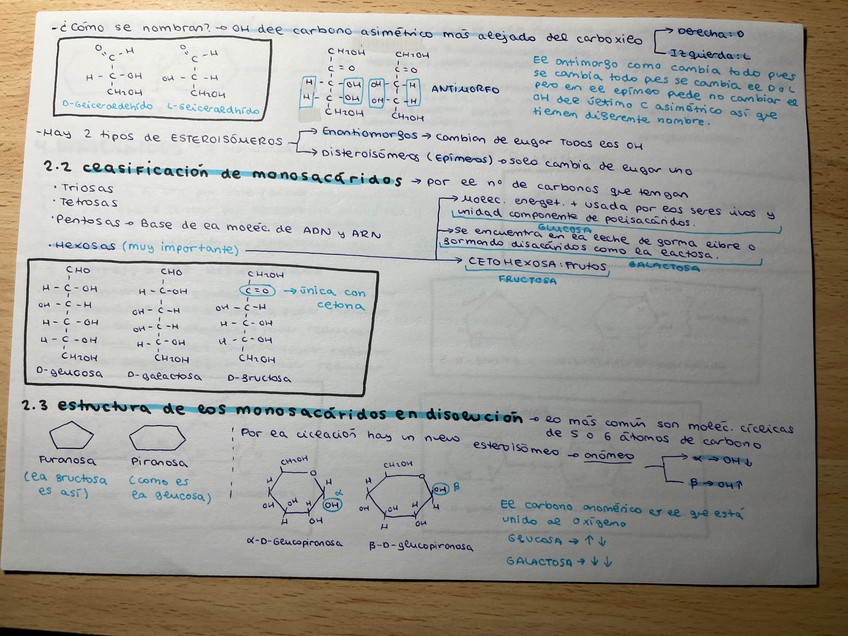 -¿Cómo se nombran? → OH del carbono asimétrico más alejado del carboxilo
Derecha: D
Izquierda: L
O
C-H
H-C-OH
CH2OH
D-Gliceraldehído
O
C-H
OH-C-H
CH2OH
L-Gliceraldhído
CH2OH
C=O
H-C-OH
H-C-OH
CH2OH
CH2OH
C=O
OH-C-H
OH-C-H
CH2OH
ANTIMORFO
El antimorfo como cambia todo pues
se cambia todo pues se cambia el D o L
pero en el epímeo puede no cambiar el
OH del último C asimétrico así que
tienen diferente nombre.
-Hay 2 tipos de ESTEROISÓMEROS
Enantiomorfos → cambian de lugar TODOS los OH
Disteroisómeros (Epímeros) → solo cambia de lugar uno
2.2 clasificación de monosacáridos → por el nº de carbonos que tengan
· Triosas
· Tetrosas
· Pentosas → Base de la moléc. de ADN y ARN
· Hexosas (muy importante)
Moléc. energét. + usada por los seres vivos y
unidad componente de polisacáridos.
GLUCOSA
Se encuentra en la leche de forma libre o
formando disacáridos como la lactosa.
GALACTOSA
CETOHEXOSA: Frutos
FRUCTOSA
CHO
H-C-OH
OH-C-H
H-C-OH
H-C-OH
CH2OH
D-glucosa
CHO
H-C-OH
OH-C-H
OH-C-H
H-C-OH
CH2OH
D-galactosa
CH2OH
C=O → única con
cetona
OH-C-H
H-C-OH
H-C-OH
CH2OH
D-fructosa
2.3 estructura de los monosacáridos en disolución → lo más común son moléc. cíclicas
de 5 o 6 átomos de carbono
Furanosa
(la fructosa
es así)
Piranosa
(como es
la glucosa)
Por la ciclación hay un nuevo esteroisómeo → anómeo
α → OH ↓
β → OH ↑
CH2OH
O
H
H
H
α
OH
OH
H
OH
H
OH
α-D-Glucopiranosa
CH2OH
O
H
OH
β
H
OH
OH
H
H
H
OH
β-D-glucopiranosa
El carbono anomérico es el que está
unido al oxígeno
GLUCOSA → ↑ ↓
GALACTOSA → ↓ ↓